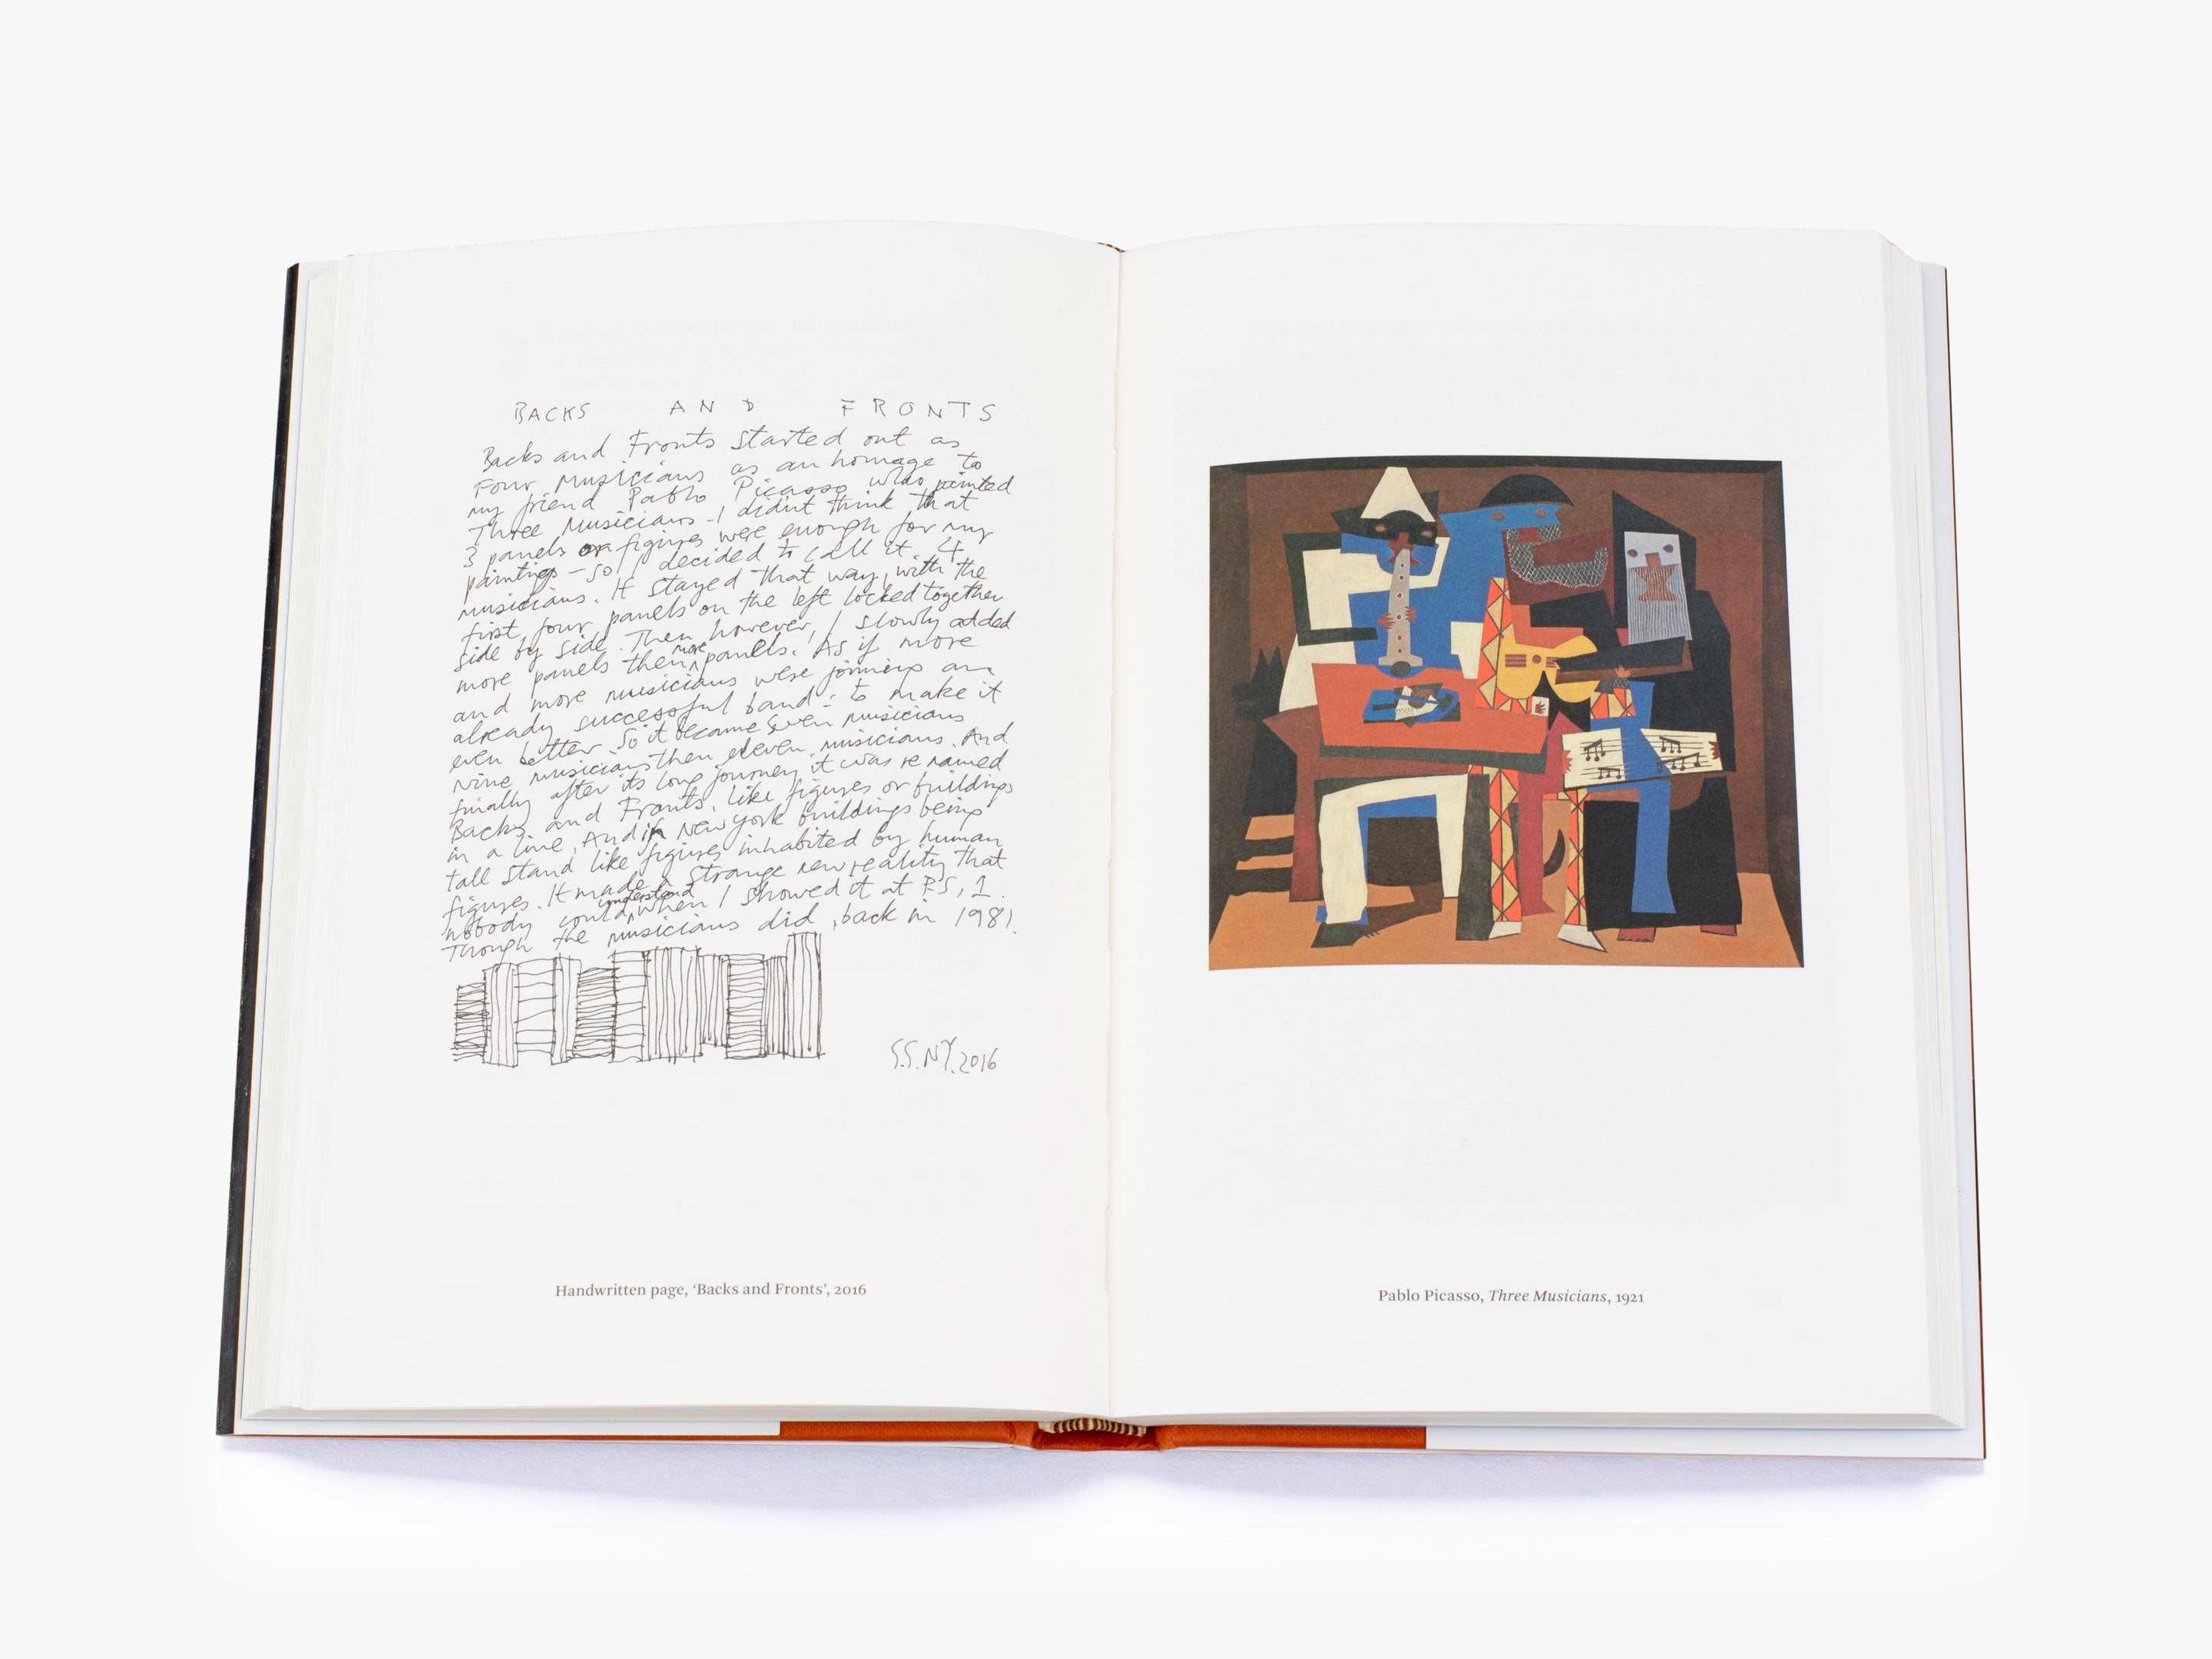 BACKS AND FRONTS
Backs and Fronts started out as
Four Musicians as an homage to
my friend Pablo Picasso who painted
Three Musicians - I didnt think that
3 panels or figures were enough for my
paintings - so I decided to call it 4
musicians. It stayed that way, with the
first four panels on the left locked together
side by side. Then however, I slowly added
more panels then more panels. As if more
and more musicians were joining an
already successful band: to make it
even better. So it became seven musicians
nine musicians then eleven musicians. And
finally after its long journey it was renamed
Backs and Fronts. Like figures or buildings
in a line. And in New York buildings being
tall stand like figures inhabited by human
figures. It made a strange new reality that
nobody could understand when I showed it at P.S, 1.
Though the musicians did, back in 1981.
S.S. NY. 2016
Handwritten page, ‘Backs and Fronts’, 2016
Pablo Picasso, Three Musicians, 1921